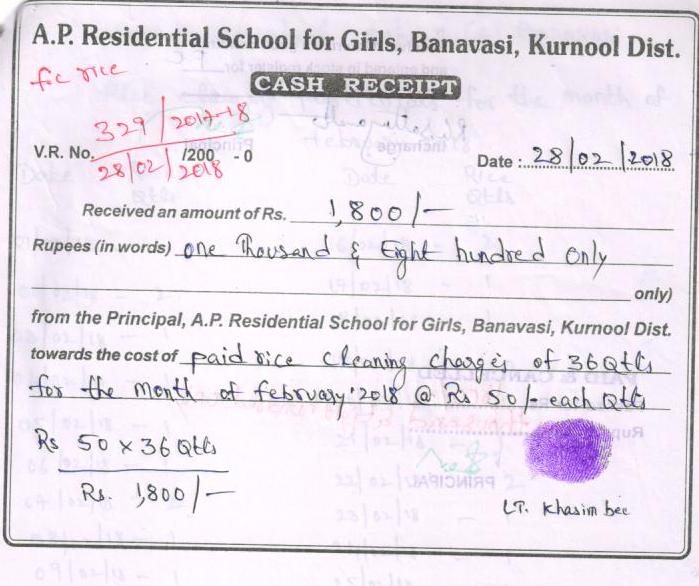 A.P. Residential School for Girls, Banavasi, Kurnool Dist.
fc rice
CASH RECEIPT
V.R. No. 329/2017-18
28/02/2018 /200 -0
Date : 28/02/2018
Received an amount of Rs. 1,800/-
Rupees (in words) one Thousand & Eight hundred only
only)
from the Principal, A.P. Residential School for Girls, Banavasi, Kurnool Dist.
towards the cost of paid rice cleaning charges of 36 Qtls
for the month of february'2018 @ Rs 50/- each Qtls
Rs 50 x 36 Qtls
Rs. 1,800/-
LT. Khasim bee